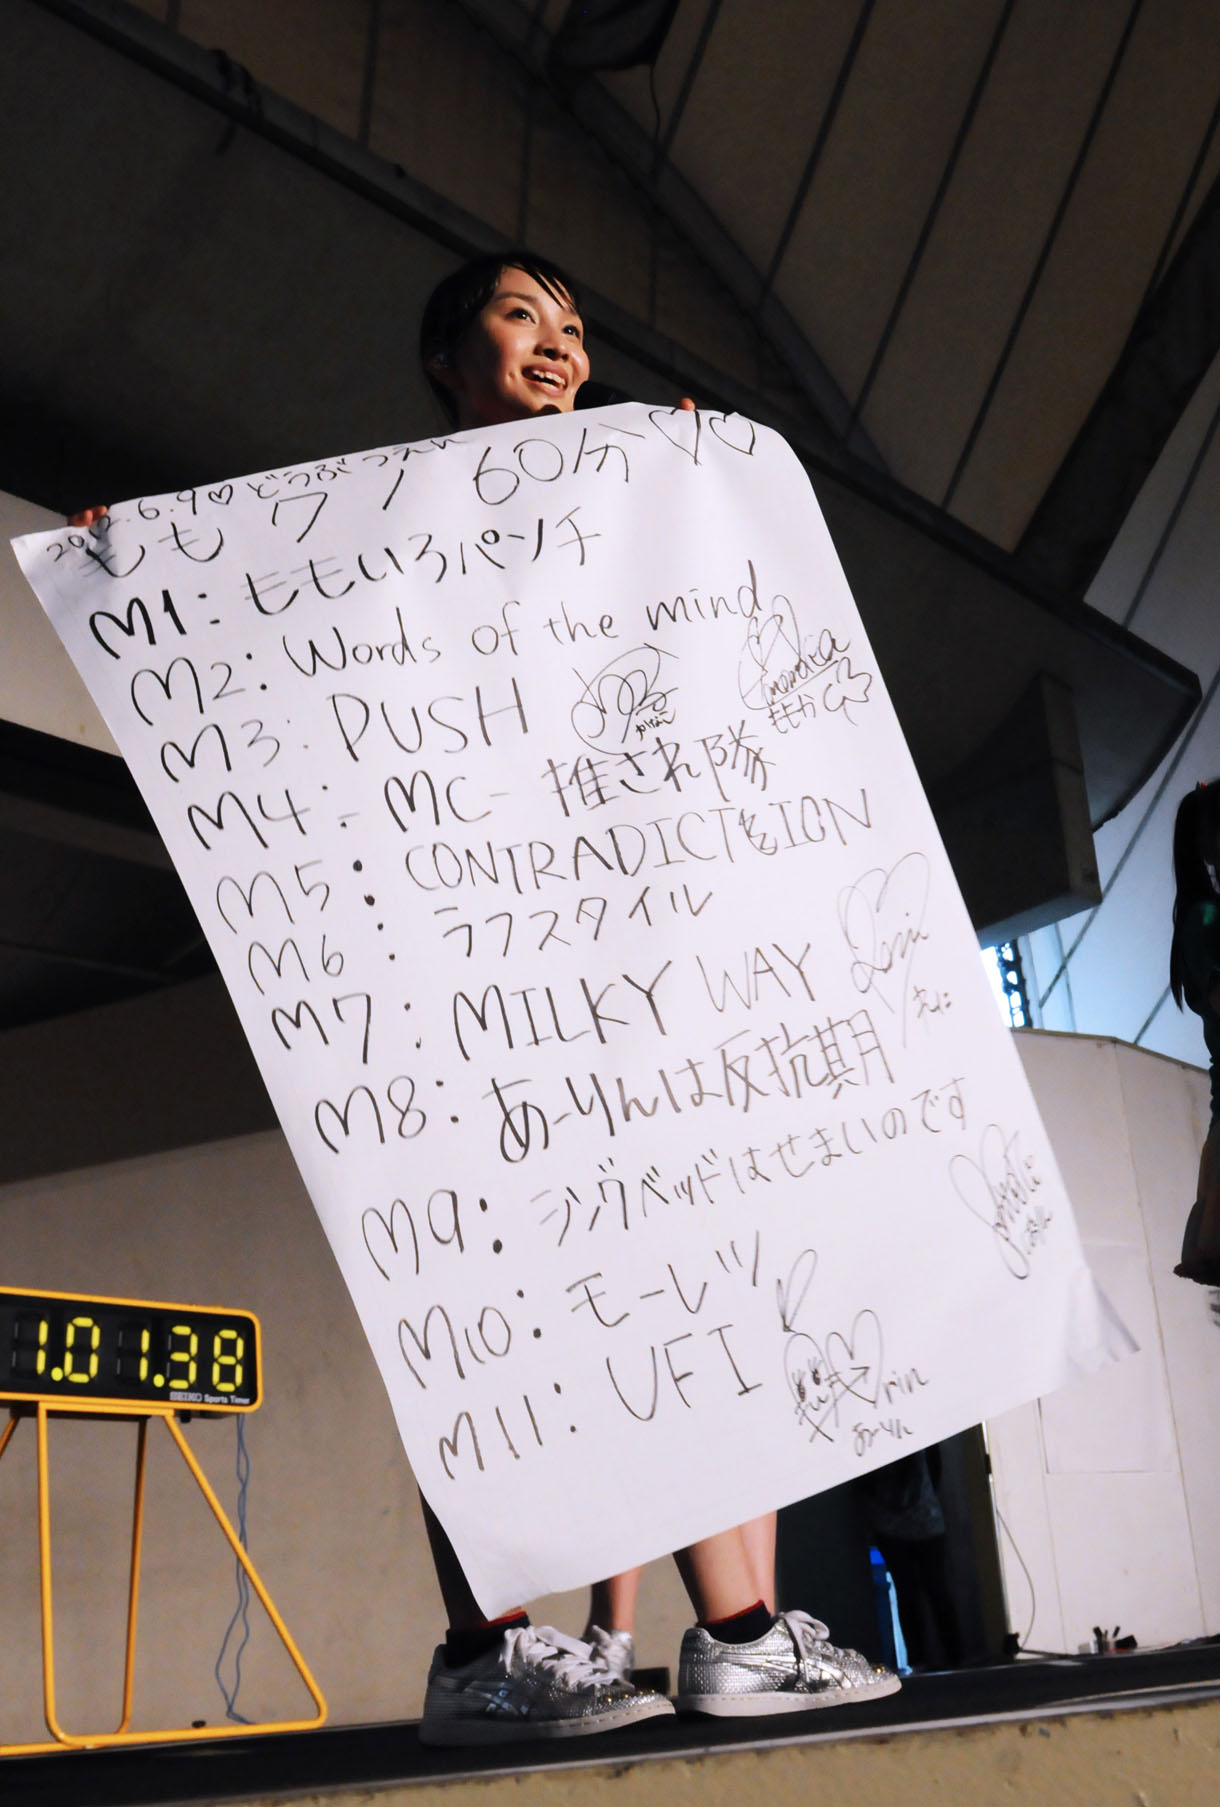 2012.6.9♡どうぶつえん
ももクノ 60分♡♡
M1:ももいろパンチ
M2:Words of the mind
M3:PUSH
かなこ
momoka
ももか
M4:MC-推され隊
M5:CONTRADICTION
M6:ラフスタイル
M7:MILKY WAY
Reni
れに
M8:あーりんは反抗期
M9:シングルベッドはせまいのです
M10:モーレツ
M11:UFI
rin
あーりん
1.01.38
SEIKO Sports Timer